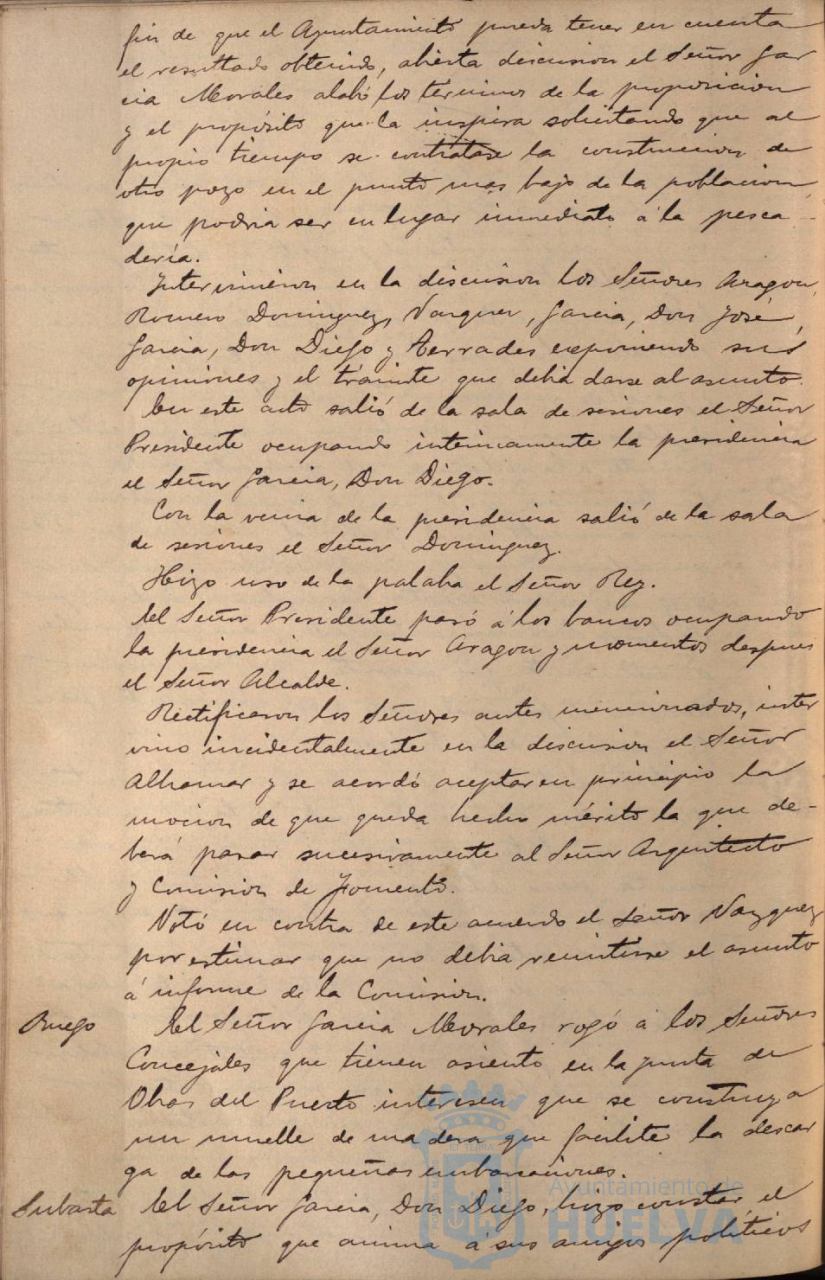 fin de que el Ayuntamiento pueda tener en cuenta
el resultado obtenido, abierta discusion el Señor Gar
cia Morales alabó los terminos de la proposicion
y el propósito que la inspira solicitando que al
propio tiempo se contratase la construccion de
otro pozo en el punto mas bajo de la poblacion,
que podria ser en lugar inmediato á la pesca-
dería.
Intervinieron en la discusion los Señores Aragon,
Romero Dominguez, Vazquez, Garcia, Don José,
Garcia, Don Diego y Terrades exponiendo sus
opiniones y el trámite que debia darse al asunto.
En este acto salió de la sala de sesiones el Señor
Presidente ocupando interinamente la presidencia
el Señor Garcia, Don Diego.
Con la venia de la presidencia salió de la sala
de sesiones el Señor Dominguez.
Hizo uso de la palaba el Señor Rey.
El Señor Presidente pasó á los bancos ocupando
la presidencia el Señor Aragon y momentos despues
el Señor Alcalde.
Rectificaron los Señores antes mencionados, inter
vino incidentalmente en la discusion el Señor
Alhamar y se acordó aceptar en principio la
mocion de que queda hecho mérito la que de-
berá pasar sucesivamente al Señor Arquitecto
y Comision de Fomento.
Votó en contra de este acuerdo el Señor Vazquez
por estimar que no debia remitirse el asunto
á informe de la Comision.
Ruego El Señor Garcia Morales rogó á los Señores
Concejales que tienen asiento en la Junta de
Obras del Puerto interesen que se construya
un muelle de madera que facilite la descar
ga de las pequeñas embarcaciones.
Subasta El Señor Garcia, Don Diego, hizo constar el
propósito que anima á sus amigos politicos
Ayuntamiento de
HUELVA